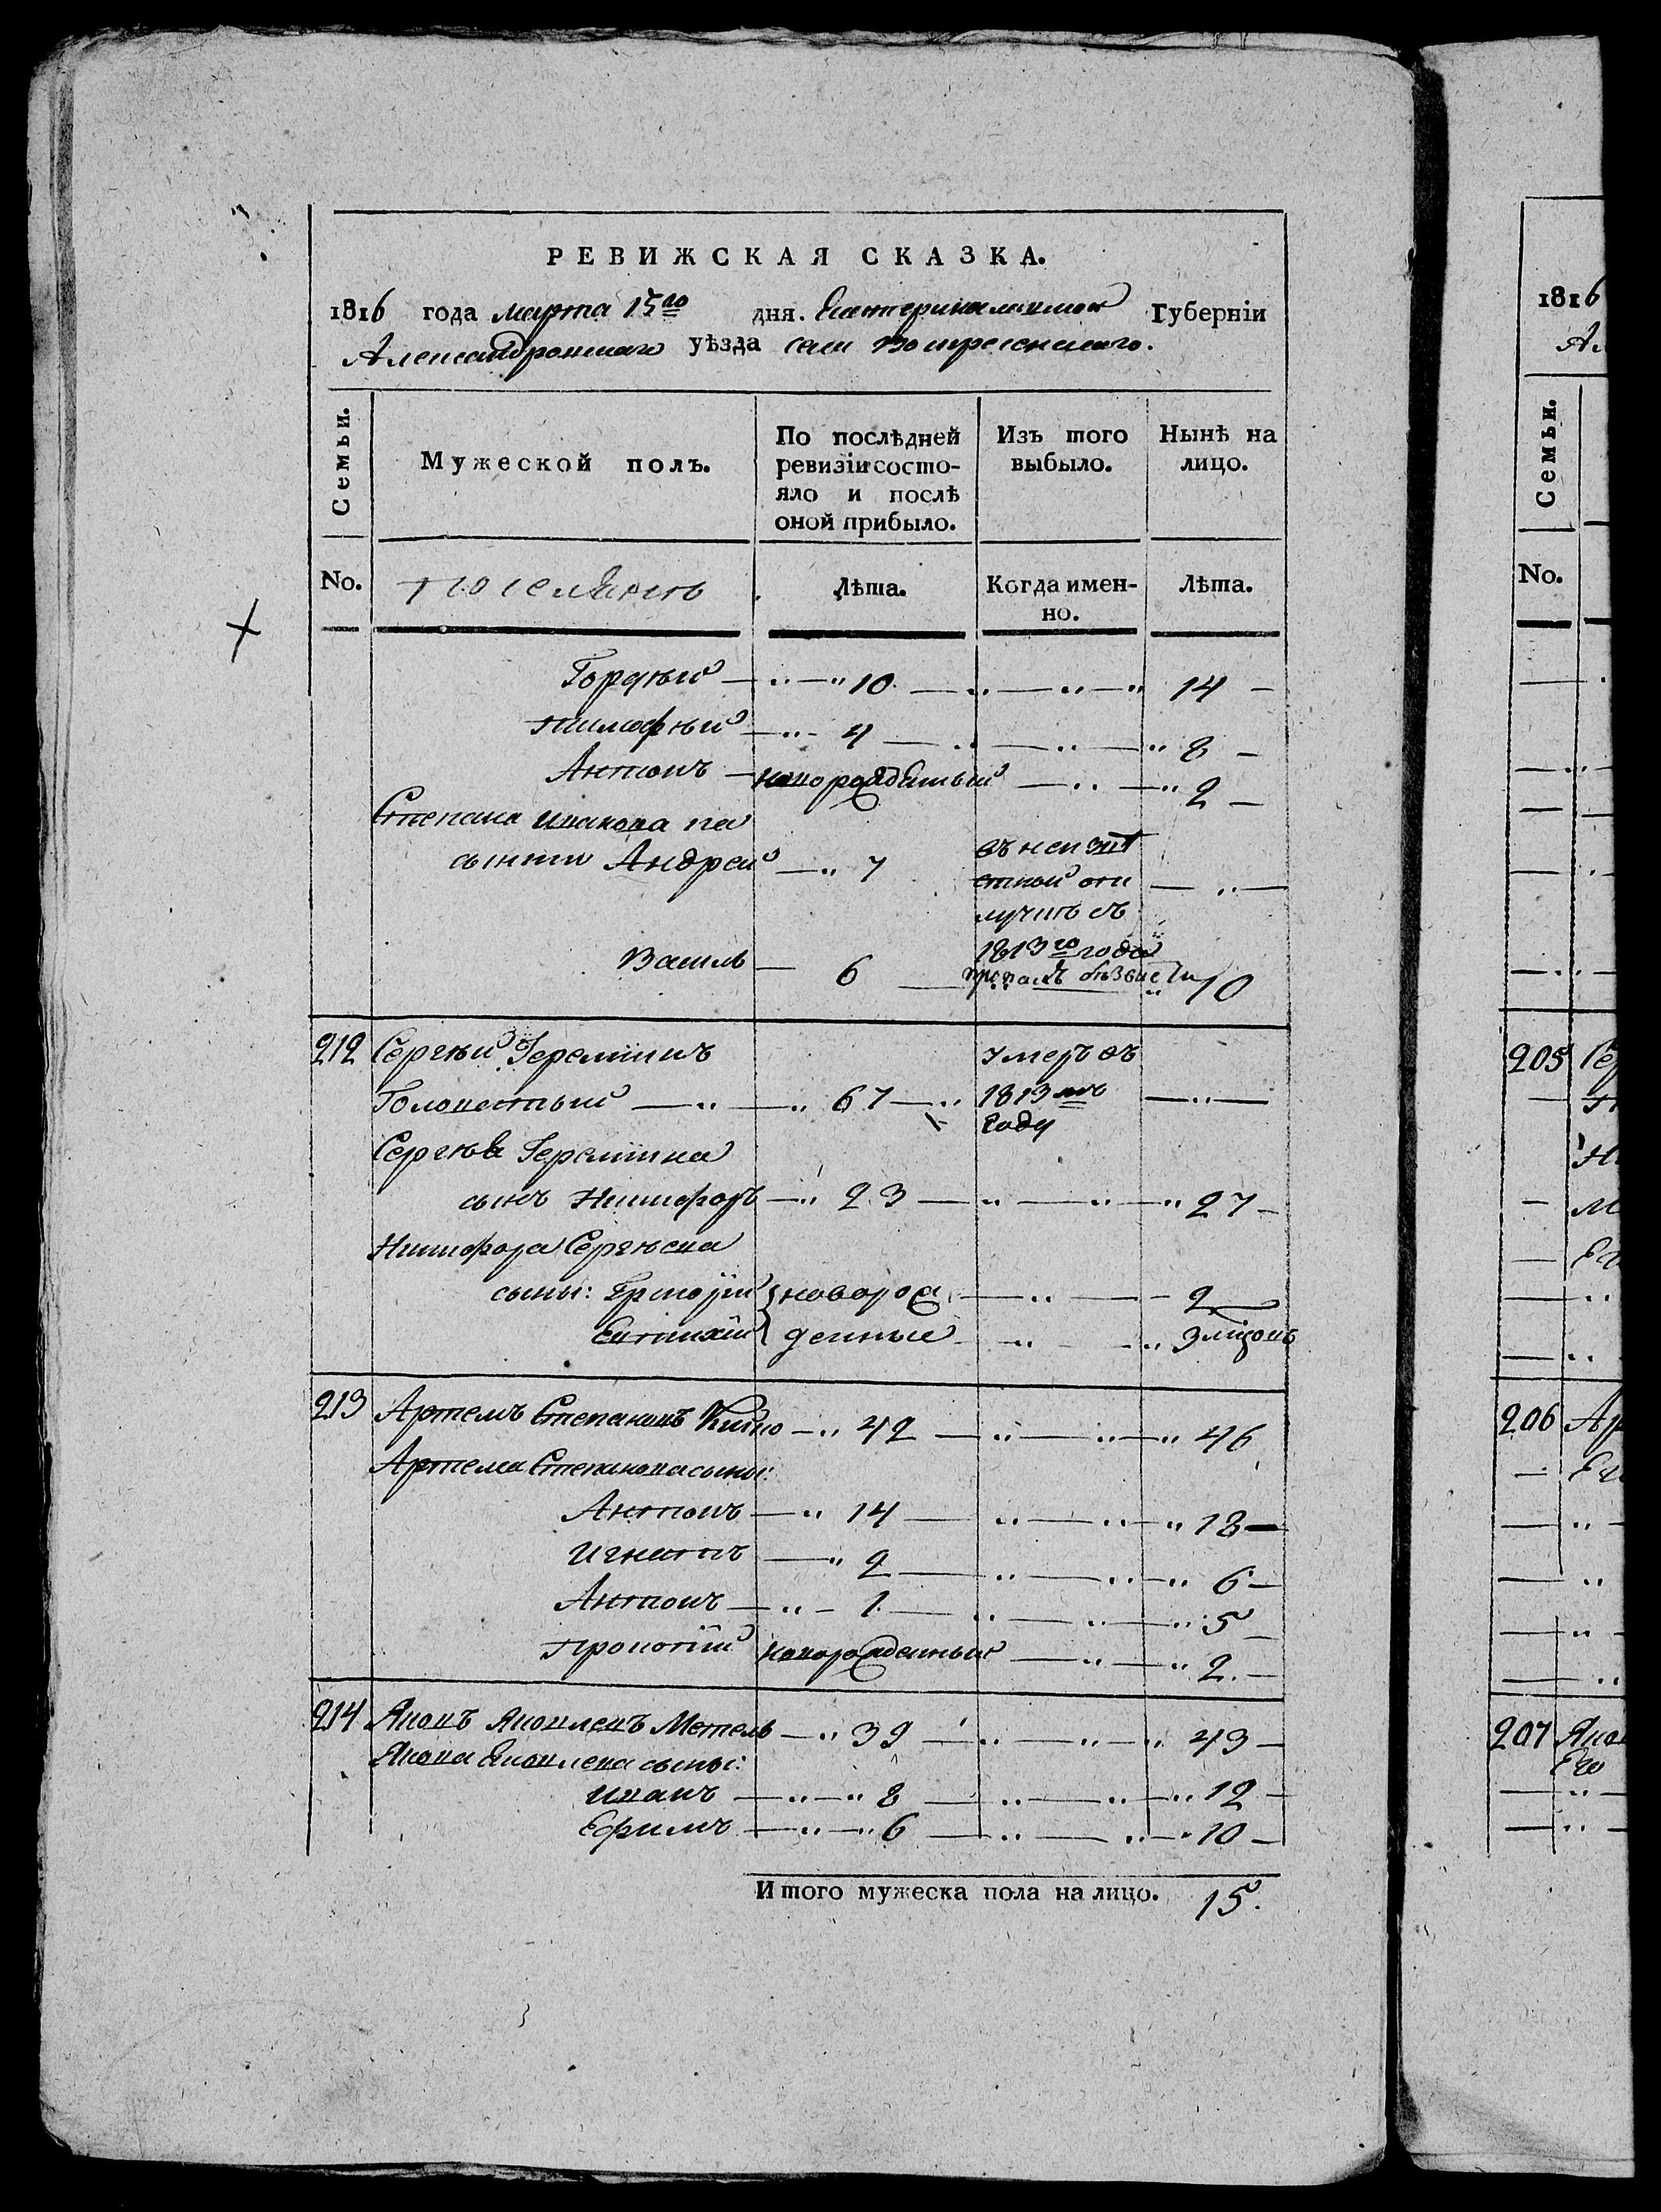 РЕВИЖСКАЯ СКАЗКА.
1816 года марта 15го дня. Екатеринославской Губерніи
Александровскаго уѣзда села Вознесенскаго.
Семьи.
Мужеской полъ.
По послѣдней ревизіи состо-
яло и послѣ
оной прибыло.
Изъ того
выбыло.
Нынѣ на
лицо.
No.
Поселянъ
Лѣта.
Когда имен-
но.
Лѣта.
Гордѣй 10 14
Тимофѣй 4 8
Антонъ новорожденный 2
Степана Иванова па
сынки Андрей 7 въ неизвѣ
стной отлучкѣ съ
1813го года
пропалъ безвѣсти
Василь 6 10
212 Сергѣй Іереміинъ
Голопестый 67 умеръ въ
1813мъ
году
Сергѣя Іереміина
сынъ Никифоръ 23 27
Никифора Сергѣева
сыны: Григорій новорож 2
Евтихій денные 3 мѣсяцъ
213 Артемъ Степановъ Кийко 42 46
Артема Степанова сыны:
Антонъ 14 18
Игнатъ 2 6
Антонъ 1 5
Прокопій новорожденный 2
214 Яковъ Яковлевъ Метель 39 43
Якова Яковлева сыны:
Иванъ 8 12
Ефимъ 6 10
Итого мужеска пола на лицо. 15.
1816
Ал
Семьи.
No.
205 Сер
206 Ар
207 Яко
Его